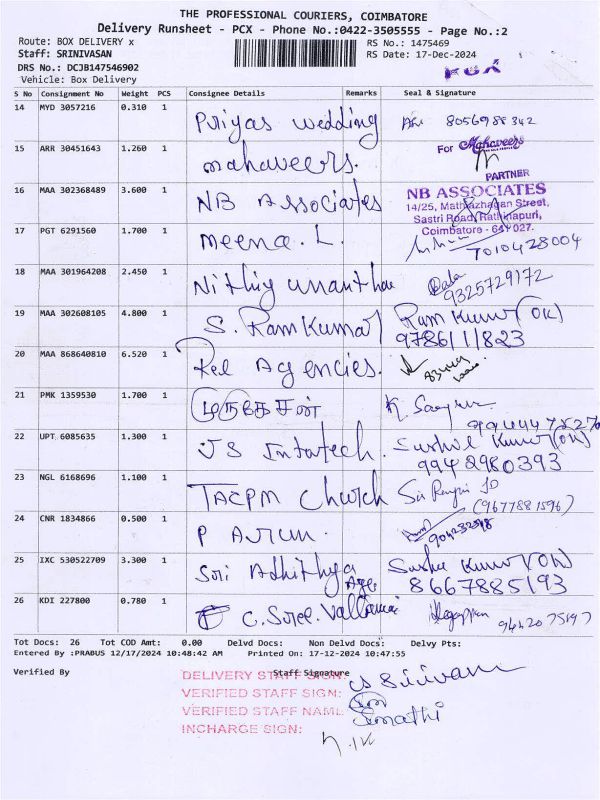 THE PROFESSIONAL COURIERS, COIMBATORE
Delivery Runsheet - PCX - Phone No.:0422-3505555 - Page No.:2
Route: BOX DELIVERY x
RS No.: 1475469
Staff: SRINIVASAN
RS Date: 17-Dec-2024
DRS No.: DCJB147546902
PCX
Vehicle: Box Delivery
S No Consignment No Weight PCS Consignee Details Remarks Seal & Signature
14 MYD 3057216 0.310 1 Priyas wedding 8056988342
15 ARR 30451643 1.260 1 mahaveers. For Mahaveers
PARTNER
16 MAA 302368489 3.600 1 NB Associates NB ASSOCIATES
14/25, Mathiazhagan Street,
Sastri Road, Rathinapuri,
Coimbatore - 641 027.
17 PGT 6291560 1.700 1 meena. L. 7010428004
18 MAA 301964208 2.450 1 Nithiyananthan 9325729172
19 MAA 302608105 4.800 1 S. Ram Kumar Ram Kumar (OK)
9786111823
20 MAA 868640810 6.520 1 Rel Agencies.
21 PMK 1359530 1.700 1 முருகேசன் K.
22 UPT 6085635 1.300 1 JS Infratech. Sushil Kumar (OK)
9942980393
23 NGL 6168696 1.100 1 TACPM Church
(9677881596)
24 CNR 1834866 0.500 1 P Avrun.
25 IXC 530522709 3.300 1 Sri Adhithya Age. Sushil Kumar (OK)
8667885193
26 KDI 227800 0.780 1 C. Sree. Valliammai 9442075197
Tot Docs: 26 Tot COD Amt: 0.00 Delvd Docs: Non Delvd Docs: Delvy Pts:
Entered By :PRABUS 12/17/2024 10:48:42 AM Printed On: 17-12-2024 10:47:55
Verified By Staff Signature
DELIVERY STAFF SIGN:
VERIFIED STAFF SIGN:
VERIFIED STAFF NAME: Sumathi
INCHARGE SIGN: